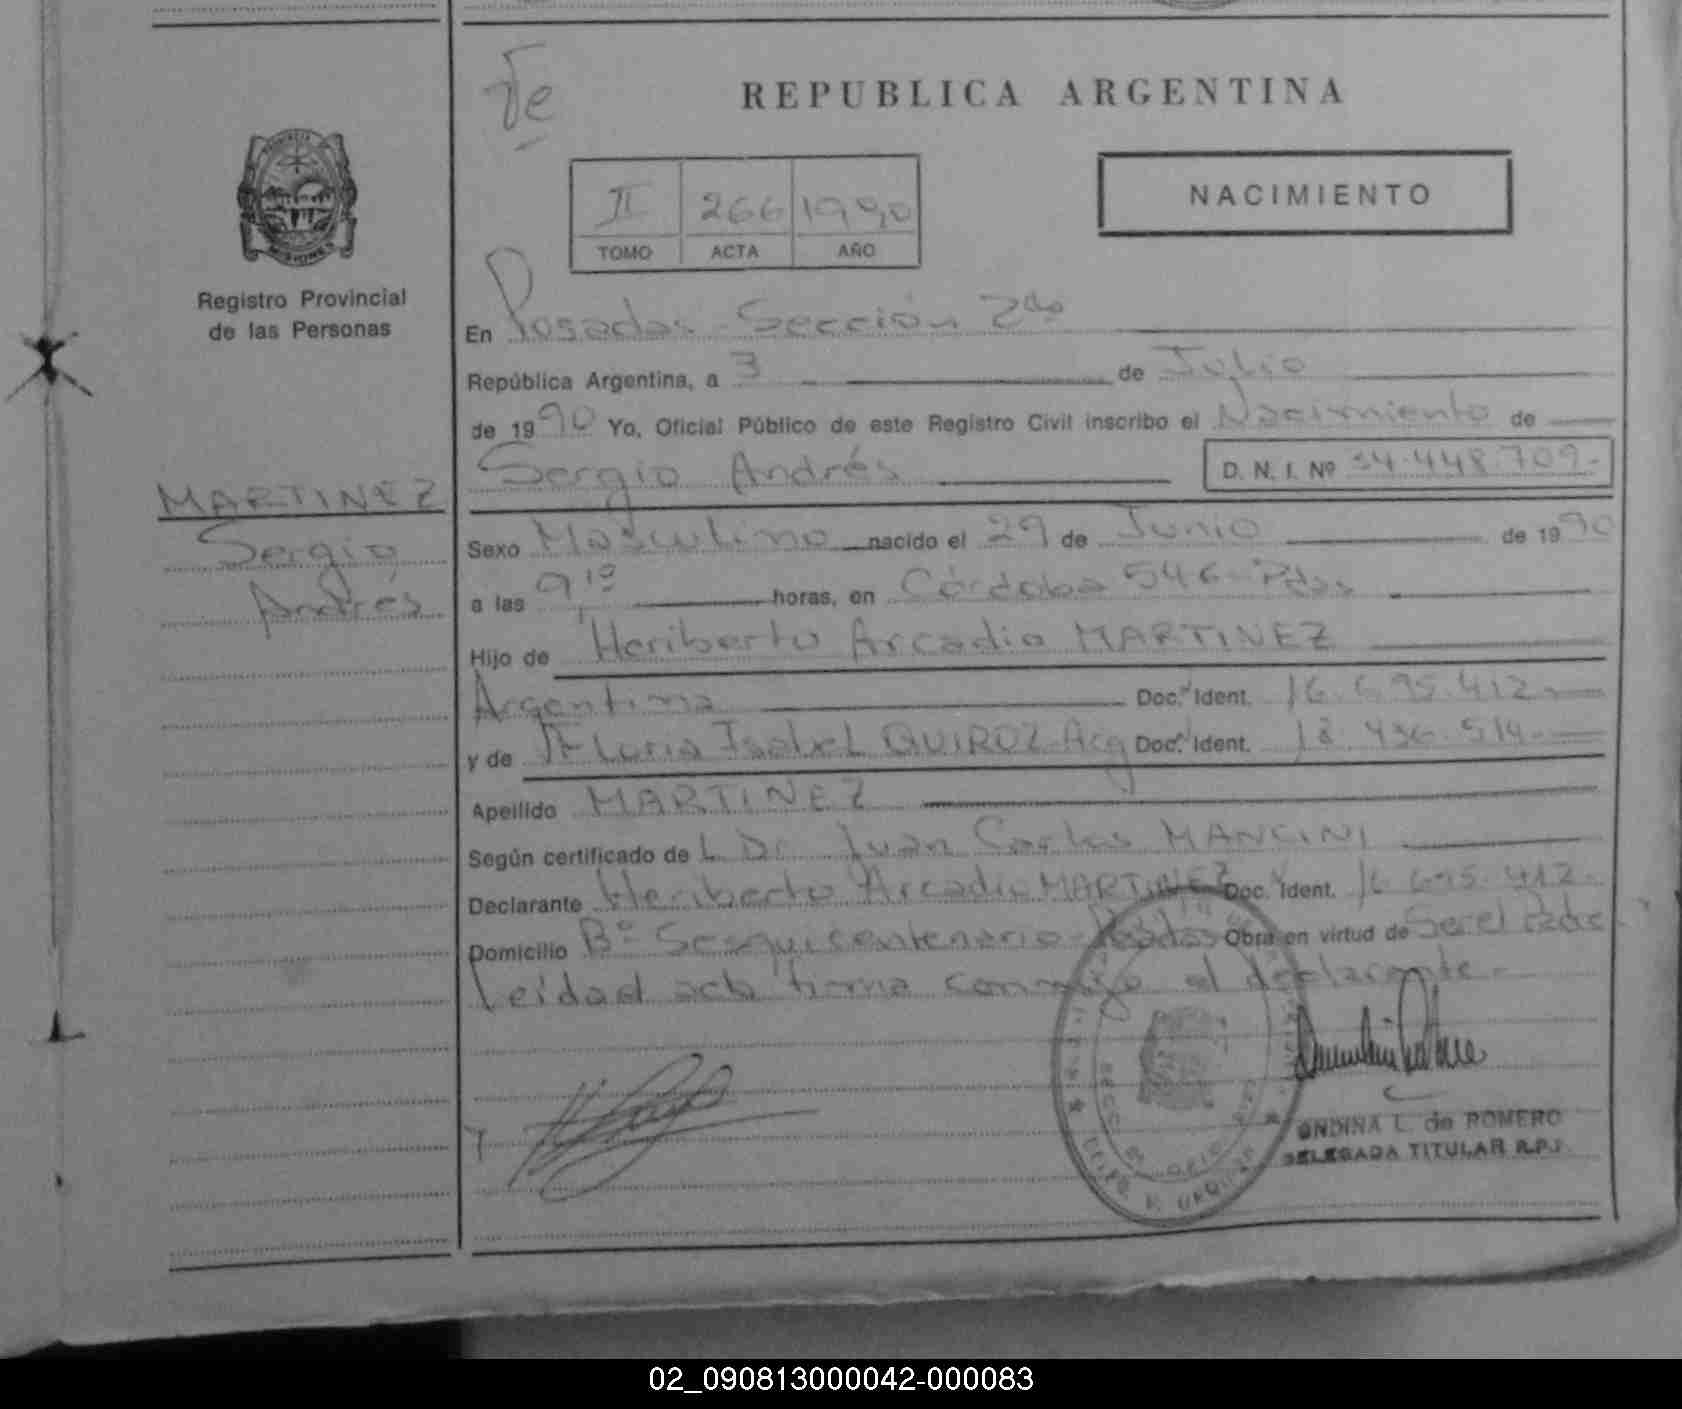 Te
REPUBLICA ARGENTINA
II 266 1990
TOMO ACTA AÑO
NACIMIENTO
PROVINCIA
MISIONES
Registro Provincial
de las Personas
MARTINEZ
Sergio
Andrés
En Posadas - Sección 2da
República Argentina, a 3 de Julio
de 1990 Yo, Oficial Público de este Registro Civil inscribo el Nacimiento de
Sergio Andrés D. N. I. Nº 34.448.709-
Sexo Masculino nacido el 29 de Junio de 1990
a las 9,10 horas, en Córdoba 546 - Pdas
Hijo de Heriberto Arcadio MARTINEZ
Argentina Doc. Ident. 16.695.412-
y de Isabel QUIROZ-Arg Doc. Ident. 18.436.514-
Apellido MARTINEZ
Según certificado de L Dr Juan Carlos MANCINI
Declarante Heriberto Arcadio MARTINEZ Doc. Ident. 16.695.412-
Domicilio Bº Sesquicentenario - Posadas Obra en virtud de Ser el Padre
Leidad acta firma conmigo el declarante-
ONDINA L. de ROMERO
DELEGADA TITULAR R.P.P.
02_090813000042-000083